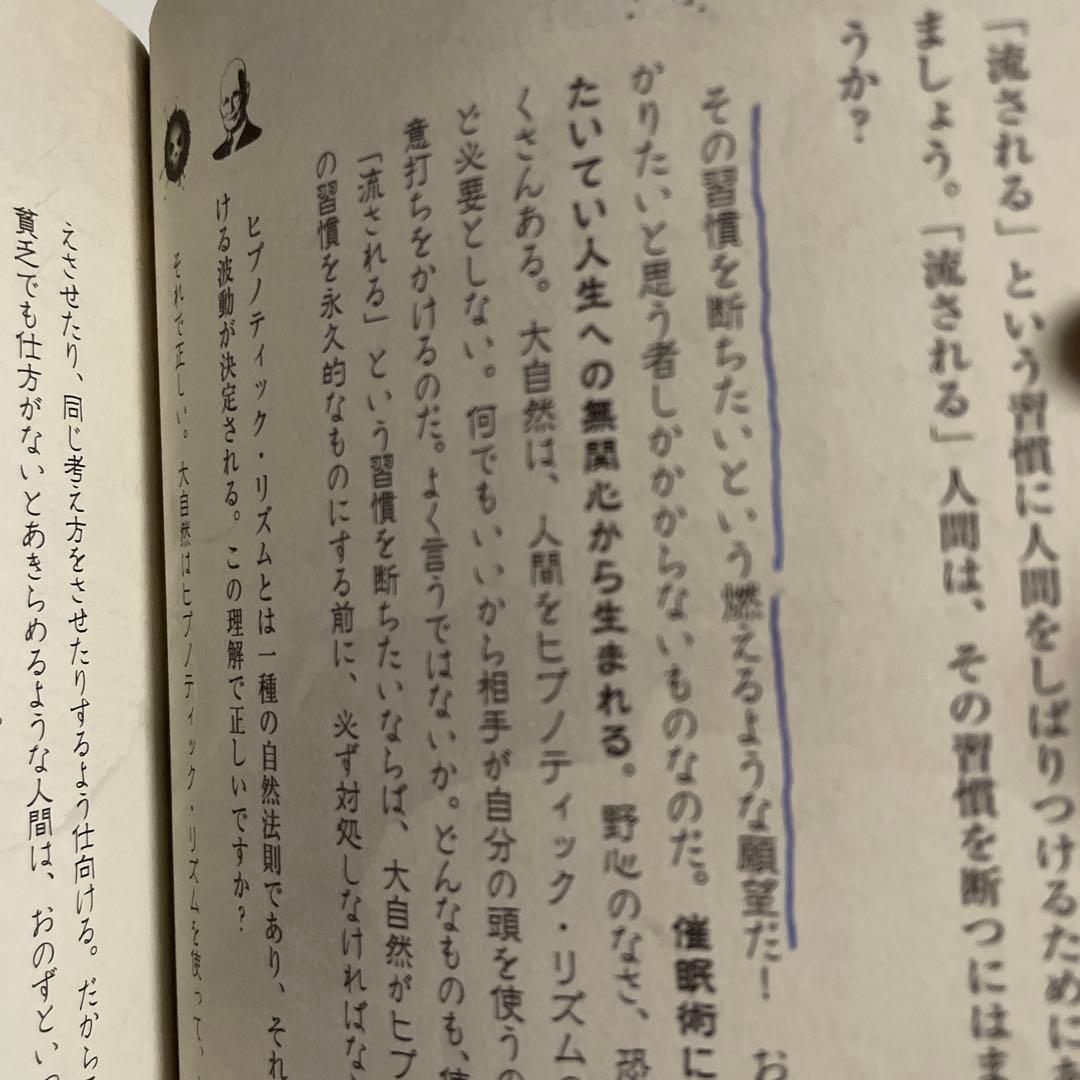 「流される」という習慣に人間をしばりつけるために
ましょう。「流される」人間は、その習慣を断つにはま
うか?
その習慣を断ちたいという燃えるような願望だ! お
かりたいと思う者しかかからないものなのだ。催眠術に
たいてい人生への無関心から生まれる。野心のなさ、恐
くさんある。大自然は、人間をヒプノティック・リズムの
ど必要としない。何でもいいから相手が自分の頭を使うの
意打ちをかけるのだ。よく言うではないか。どんなものも、使
「流される」という習慣を断ちたいならば、大自然がヒプ
の習慣を永久的なものにする前に、必ず対処しなければな
ヒプノティック・リズムとは一種の自然法則であり、それ
ける波動が決定される。この理解で正しいですか?
それで正しい。大自然はヒプノティック・リズムを使って、
えさせたり、同じ考え方をさせたりするよう仕向ける。だから
貧乏でも仕方がないとあきらめるような人間は、おのずとい